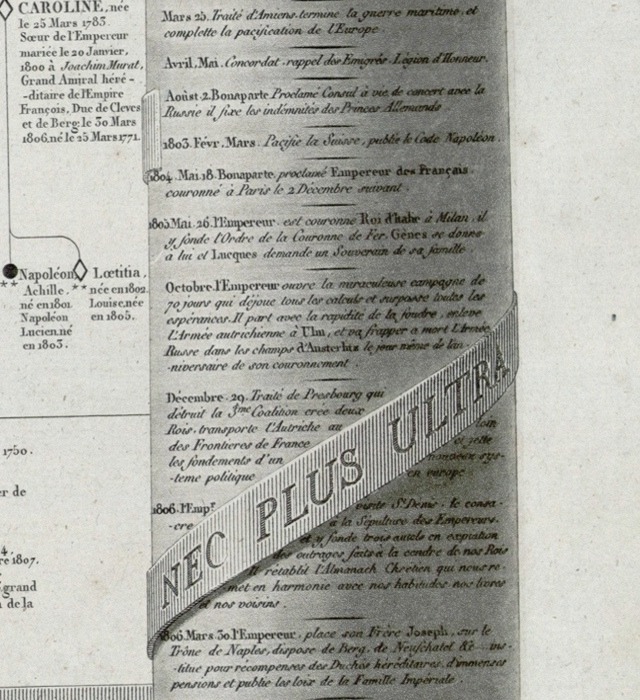 CAROLINE, née
le 25 Mars 1783.
Sœur de l'Empereur
mariée le 20 Janvier,
1800 à Joachim Murat,
Grand Amiral héré-
-ditaire de l'Empire
François, Duc de Cleves
et de Berg le 30 Mars
1806. né le 25 Mars 1771.
Napoléon
Achille.
né en 1801
Napoléon
Lucien. né
en 1803.
Lœtitia.
** née en 1802.
Louise. née
en 1805.
**
1750.
r de
4.
re 1807.
grand
de la
Mars 25. Traité d'Amiens termine la guerre maritime et
complette la pacification de l'Europe
Avril. Mai. Concordat. rappel des Emigrés. Légion d'Honneur.
Août 2. Bonaparte Proclamé Consul à vie de concert avec la
Russie il fixe les indémnités des Princes Allemands
1803. Févr. Mars. Pacifie la Suisse, publie le Code Napoléon.
1804. Mai. 18. Bonaparte, proclamé Empereur des Français.
couronné à Paris le 2 Décembre suivant.
1805 Mai. 26. l'Empereur. est couronné Roi d'Italie à Milan, il
y fonde l'Ordre de la Couronne de Fer. Gènes se donne
à lui et Lucques demande un Souverain de sa famille
Octobre. l'Empereur ouvre la miraculeuse campagne de
70 jours qui déjoue tous les calculs et surpasse toutes les
espérances. Il part avec la rapidité de la foudre, enleve
L'Armée autrichienne à Ulm, et va frapper a mort L'Armée
Russe dans les champs d'Austerlitz le jour même de l'an-
-niversaire de son couronnement.
Décembre. 29. Traité de Presbourg qui
détruit la 3me Coalition crée deux
Rois. transporte l'Autriche au loin
des Frontieres de France et jette
les fondements d'un nouveau sys-
-teme politique en europe
1806. l'Empr visite St Denis. le consa-
-cre à la Sépulture des Empereurs.
et y fonde trois autels en expiation
des outrages faits à la cendre de nos Rois
Il rétablit l'Almanach Chretien qui nous re-
-met en harmonie avec nos habitudes nos livres
et nos voisins.
NEC PLUS ULTRA
1806. Mars 30. l'Empereur, place son Frère Joseph, sur le
Trône de Naples, dispose de Berg, de Neufchatel &c ins-
-titue pour récompenses des Duchés héréditaires d'immenses
pensions et publie les loix de la Famille Impériale.